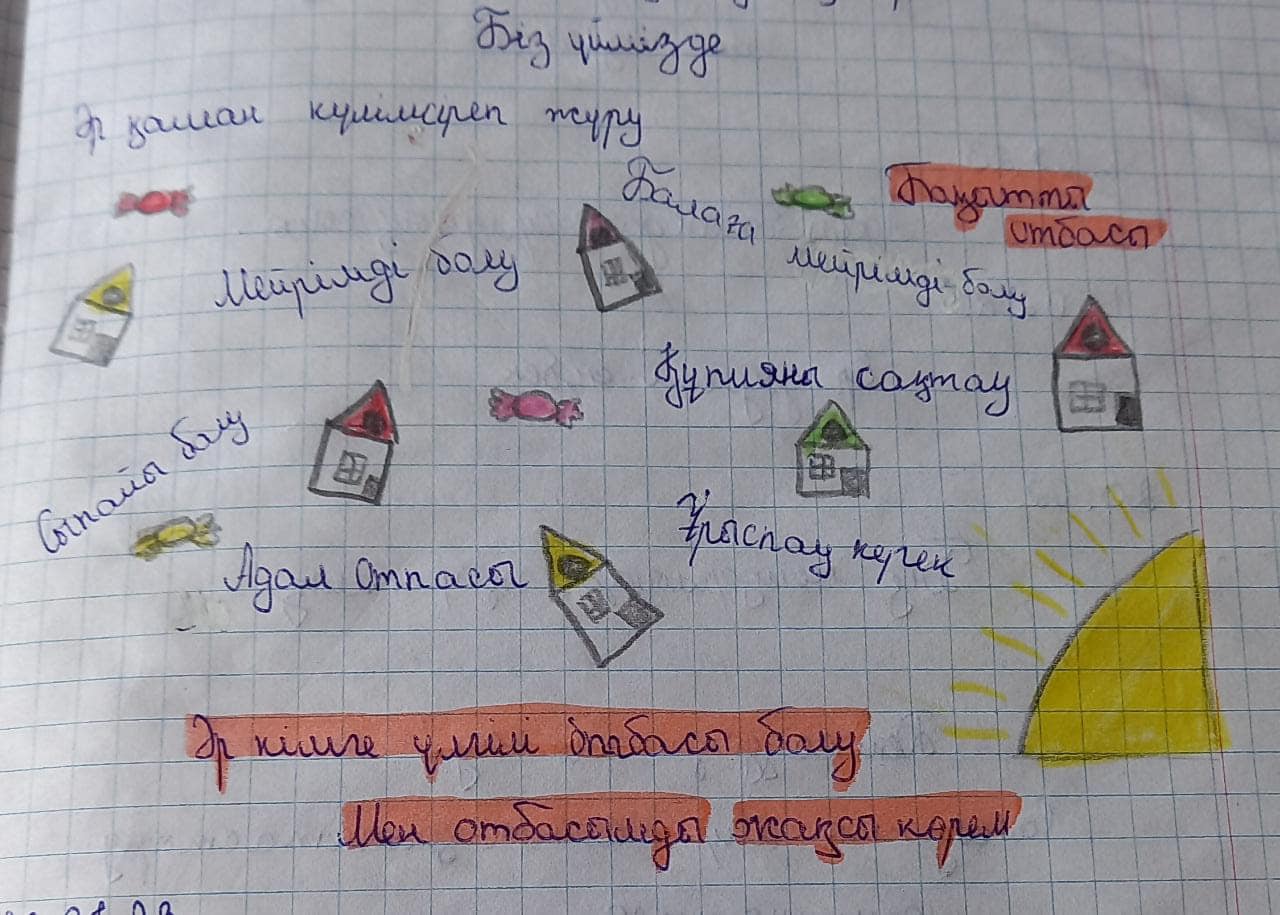 Біз үймізде
Әр қашан күлімсіреп жүру
Балаға
Бақытты
отбасы
Мейрімді болу
мейрімді болу
Құпияны сақтау
Сыпайы болу
Ұрыспау керек
Адал Отпасы
Әр кімге үлгілі отбасы болу
Мен отбасымды жақсы көрем